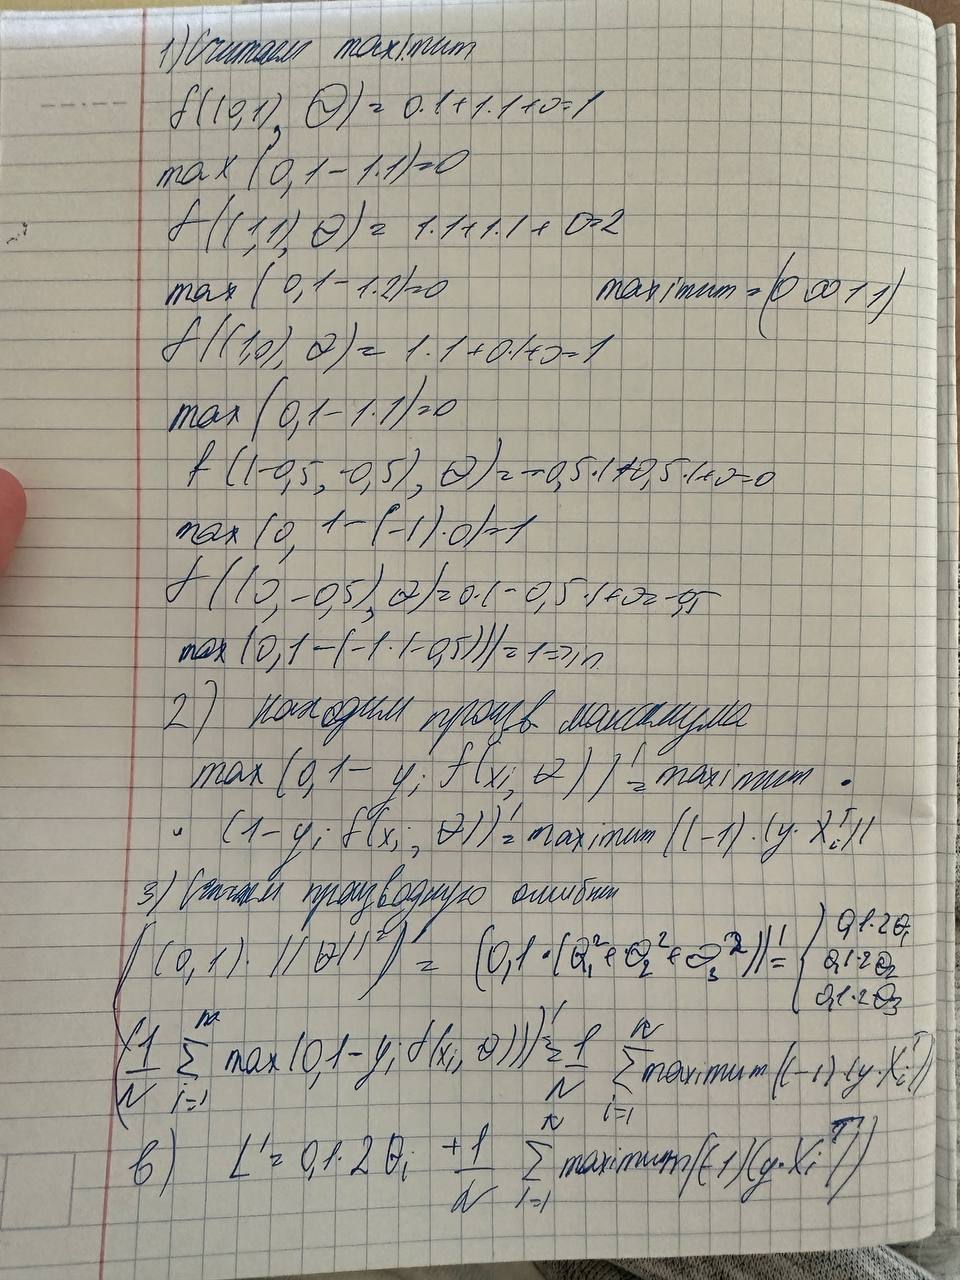 1) Считаем maximum
f((0,1), Θ) = 0·1+1·1+0=1
max (0,1-1·1)=0
f((1,1), Θ) = 1·1+1·1+0=2
max (0,1-1·2)=0 maximum = (0 0 0 1 1)
f((1,0), Θ) = 1·1+0·1+0=1
max (0,1-1·1)=0
f((-0,5, -0,5), Θ) = -0,5·1+0,5·1+0=0
max (0, 1-(-1)·0)=1
f((0, -0,5), Θ)=0·1-0,5·1+0=-0,5
max (0,1-(-1·(-0,5)))=1
2) находим произв максимума
max (0,1- yi f(xi, Θ))' = maximum ·
· (1-yi f(xi, Θ))' = maximum ((-1)·(y·Xi^T))
3) Считаем производную ошибки
((0,1)·||Θ||²)' = (0,1·(Θ1²+Θ2²+Θ3²))' = { 0,1·2Θ1
0,1·2Θ2
0,1·2Θ3
(1/N Σ i=1 N max(0,1-yi f(xi, Θ)))' = 1/N Σ i=1 N maximum((-1)·(y·Xi^T))
в) L' = 0,1·2Θi + 1/N Σ i=1 N maximum((-1)(y·Xi^T))